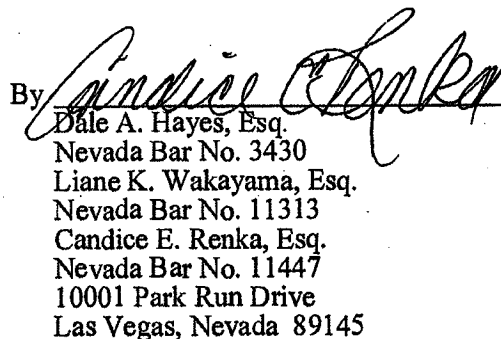 By Candice E Renka
Dale A. Hayes, Esq.
Nevada Bar No. 3430
Liane K. Wakayama, Esq.
Nevada Bar No. 11313
Candice E. Renka, Esq.
Nevada Bar No. 11447
10001 Park Run Drive
Las Vegas, Nevada 89145